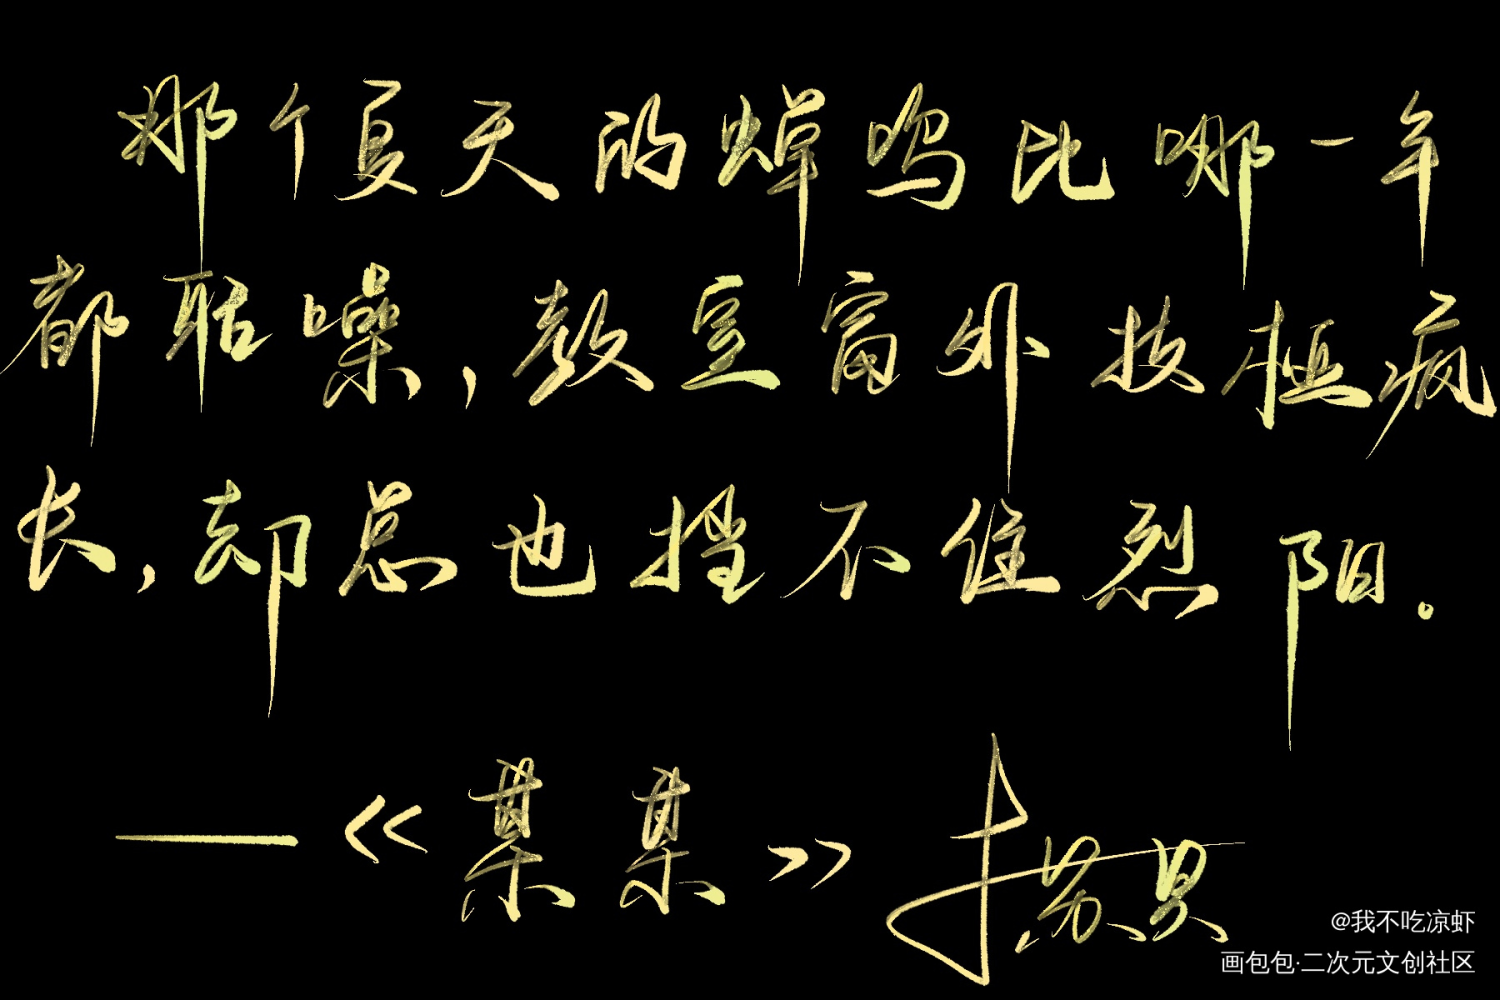 那个夏天的蝉鸣比哪一年
都聒噪，教室窗外枝桠疯
长，却总也挡不住烈阳。
——《某某》木苏里
@我不吃凉虾
画包包·二次元文创社区